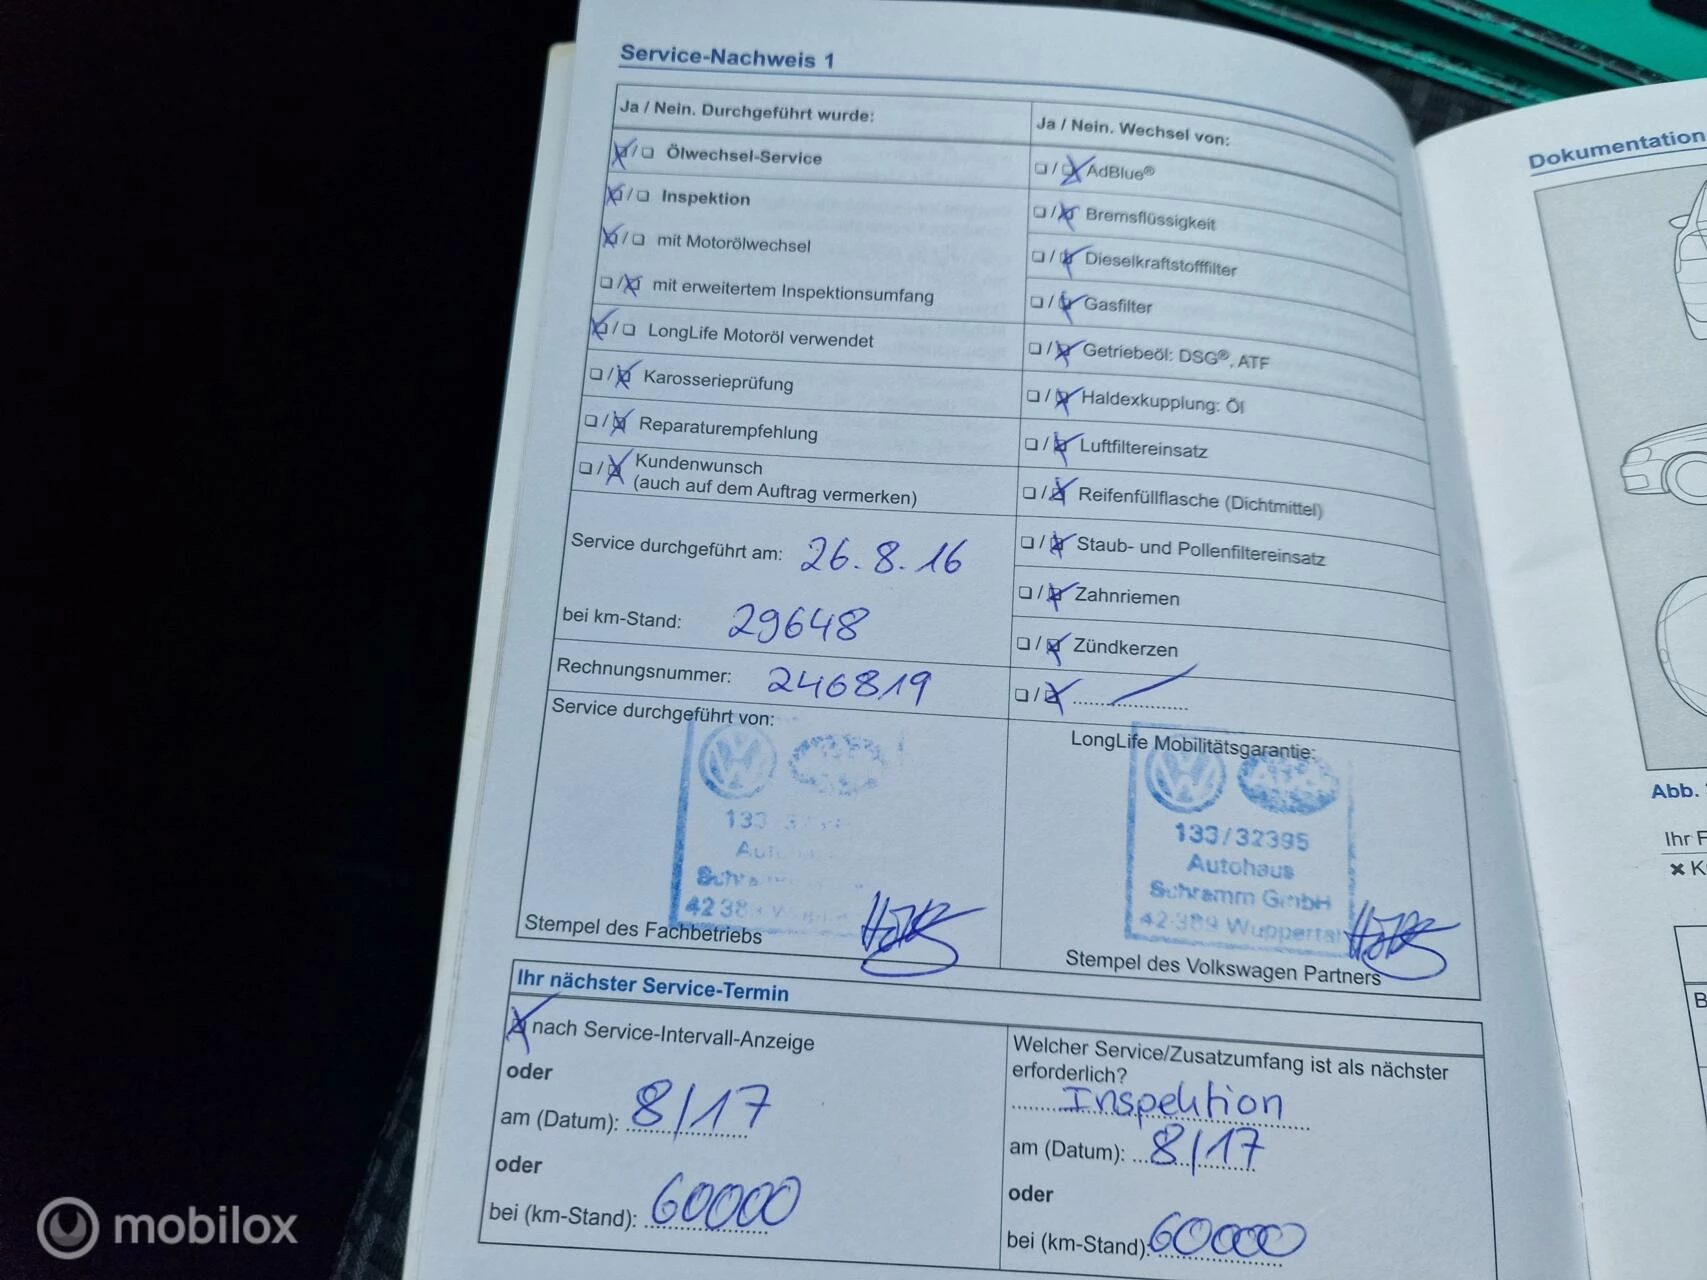 Service-Nachweis 1
Ja / Nein. Durchgeführt wurde:
Ölwechsel-Service
Inspektion
mit Motorölwechsel
mit erweitertem Inspektionsumfang
LongLife Motoröl verwendet
Karosserieprüfung
Reparaturempfehlung
Kundenwunsch
(auch auf dem Auftrag vermerken)
Service durchgeführt am: 26.8.16
bei km-Stand: 29648
Rechnungsnummer: 246819
Service durchgeführt von:
Stempel des Fachbetriebs
Ja / Nein. Wechsel von:
AdBlue®
Bremsflüssigkeit
Dieselkraftstofffilter
Gasfilter
Getriebeöl: DSG®, ATF
Haldexkupplung: Öl
Luftfiltereinsatz
Reifenfüllflasche (Dichtmittel)
Staub- und Pollenfiltereinsatz
Zahnriemen
Zündkerzen
LongLife Mobilitätsgarantie:
133/32395
Autohaus
Schramm GmbH
42389 Wuppertal
Stempel des Volkswagen Partners
Ihr nächster Service-Termin
nach Service-Intervall-Anzeige
oder
am (Datum): 8/17
oder
bei (km-Stand): 60000
Welcher Service/Zusatzumfang ist als nächster
erforderlich?
Inspektion
am (Datum): 8/17
oder
bei (km-Stand): 60000
Dokumentation
Abb.
Ihr F
mobilox